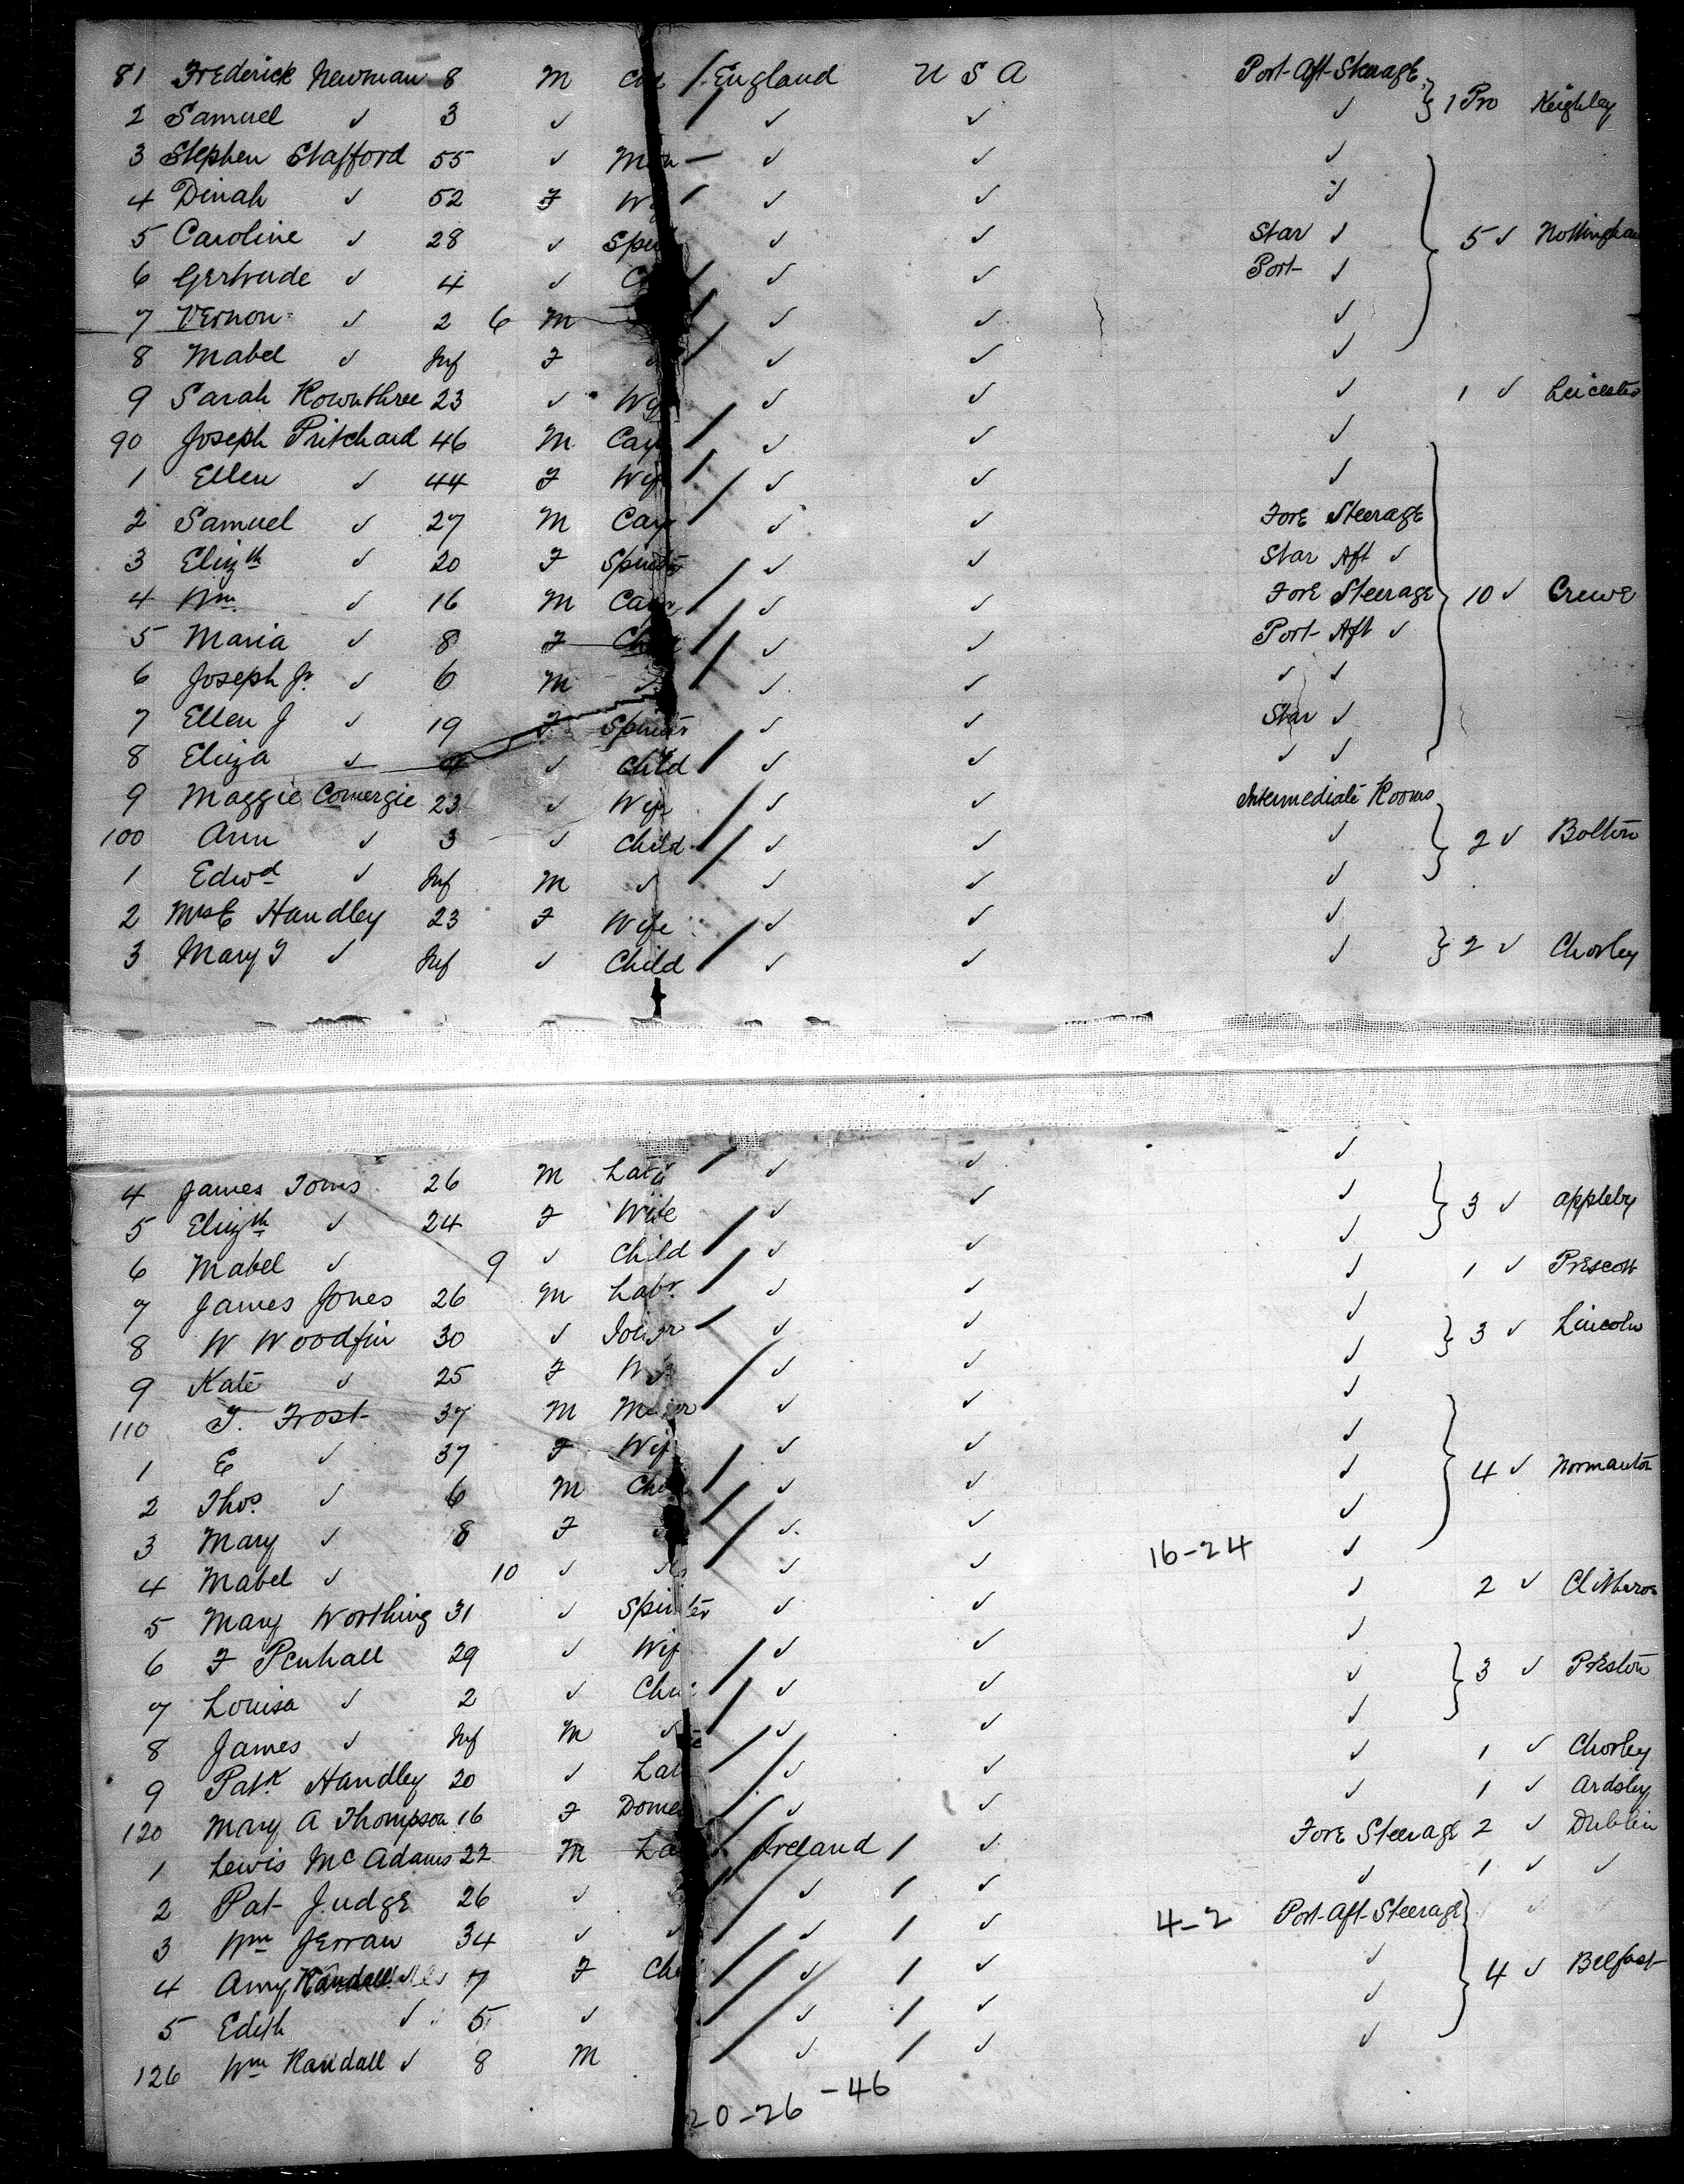 81 Frederick Newman 8 M / England U S A Port-Aft-Steerage
2 Samuel ✓ 3 ✓ / ✓ ✓ ✓ } 1 Pro Keighley
3 Stephen Stafford 55 ✓ — ✓ ✓ ✓
4 Dinah ✓ 52 F / ✓ ✓ ✓
5 Caroline ✓ 28 ✓ ✓ ✓ Star ✓ 5 ✓ Nottingham
6 Gertrude ✓ 4 ✓ / ✓ ✓ Port- ✓
7 Vernon ✓ 2 6 M / ✓ ✓ ✓
8 Mabel ✓ Inf F / ✓ ✓ ✓
9 Sarah Rownthree 23 ✓ ✓ ✓ ✓ 1 ✓ Leicester
90 Joseph Pritchard 46 M / ✓ ✓ ✓
1 Ellen ✓ 44 F Wif / ✓ ✓ ✓
2 Samuel ✓ 27 M / ✓ ✓ Fore Steerage
3 Elizth ✓ 20 F ✓ ✓ Star Aft ✓
4 Wm ✓ 16 M / ✓ ✓ Fore Steerage 10 ✓ Crewe
5 Maria ✓ 8 F / ✓ ✓ Port- Aft ✓
6 Joseph Jr. ✓ 6 M ✓ / ✓ ✓ ✓ ✓
7 Ellen J ✓ 19 F ✓ ✓ Star ✓
8 Eliza ✓ 4 ✓ Child / ✓ ✓ ✓ ✓
9 Maggie Comergie 23 ✓ Wife / ✓ ✓ Intermediate Rooms
100 Ann ✓ 3 ✓ Child / ✓ ✓ ✓ } 2 ✓ Bolton
1 Edwd ✓ Inf M ✓ ✓ ✓ ✓
2 Mrs E Handley 23 F Wife ✓ ✓ ✓
3 Mary J ✓ Inf ✓ Child / ✓ ✓ ✓ } 2 ✓ Chorley
4 James Toms 26 M / ✓ ✓ ✓
5 Elizth ✓ 24 F Wife ✓ ✓ ✓ } 3 ✓ Appleby
6 Mabel ✓ 9 ✓ Child / ✓ ✓ ✓
7 James Jones 26 M Labr. / ✓ ✓ ✓ 1 ✓ Prescott
8 W Woodfin 30 ✓ / ✓ ✓ ✓ } 3 ✓ Lincoln
9 Kate ✓ 25 F / ✓ ✓ ✓
110 T. Frost 37 M ✓ ✓ ✓
1 E ✓ 37 F Wif ✓ ✓ ✓
2 Thos. ✓ 6 M / ✓ ✓ ✓ 4 ✓ Normanton
3 Mary ✓ 8 F / ✓ ✓ ✓
4 Mabel ✓ 10 ✓ ✓ ✓ 16-24 ✓
5 Mary Worthing 31 ✓ ✓ ✓ ✓ 2 ✓ Clitheroe
6 F Penhall 29 ✓ Wif / ✓ ✓ ✓
7 Louisa ✓ 2 ✓ / ✓ ✓ ✓ } 3 ✓ Preston
8 James ✓ Inf M ✓ / ✓ ✓ ✓
9 Patk Handley 20 ✓ / ✓ ✓ ✓ 1 ✓ Chorley
120 Mary A Thompson 16 F / ✓ ✓ ✓ 1 ✓ Ardsley
1 Lewis McAdams 22 M / Ireland / ✓ Fore Steerage 2 ✓ Dublin
2 Pat Judge 26 ✓ / ✓ / ✓ ✓ 1 ✓ ✓
3 Wm Jerran 34 ✓ ✓ / ✓ / ✓ 4-2 Port-Aft-Steerage
4 Amy Randall 7 F / ✓ / ✓ ✓ 4 ✓ Belfast
5 Edith ✓ 5 ✓ / ✓ / ✓ ✓
126 Wm Randall ✓ 8 M / ✓ / ✓ ✓
20-26-46